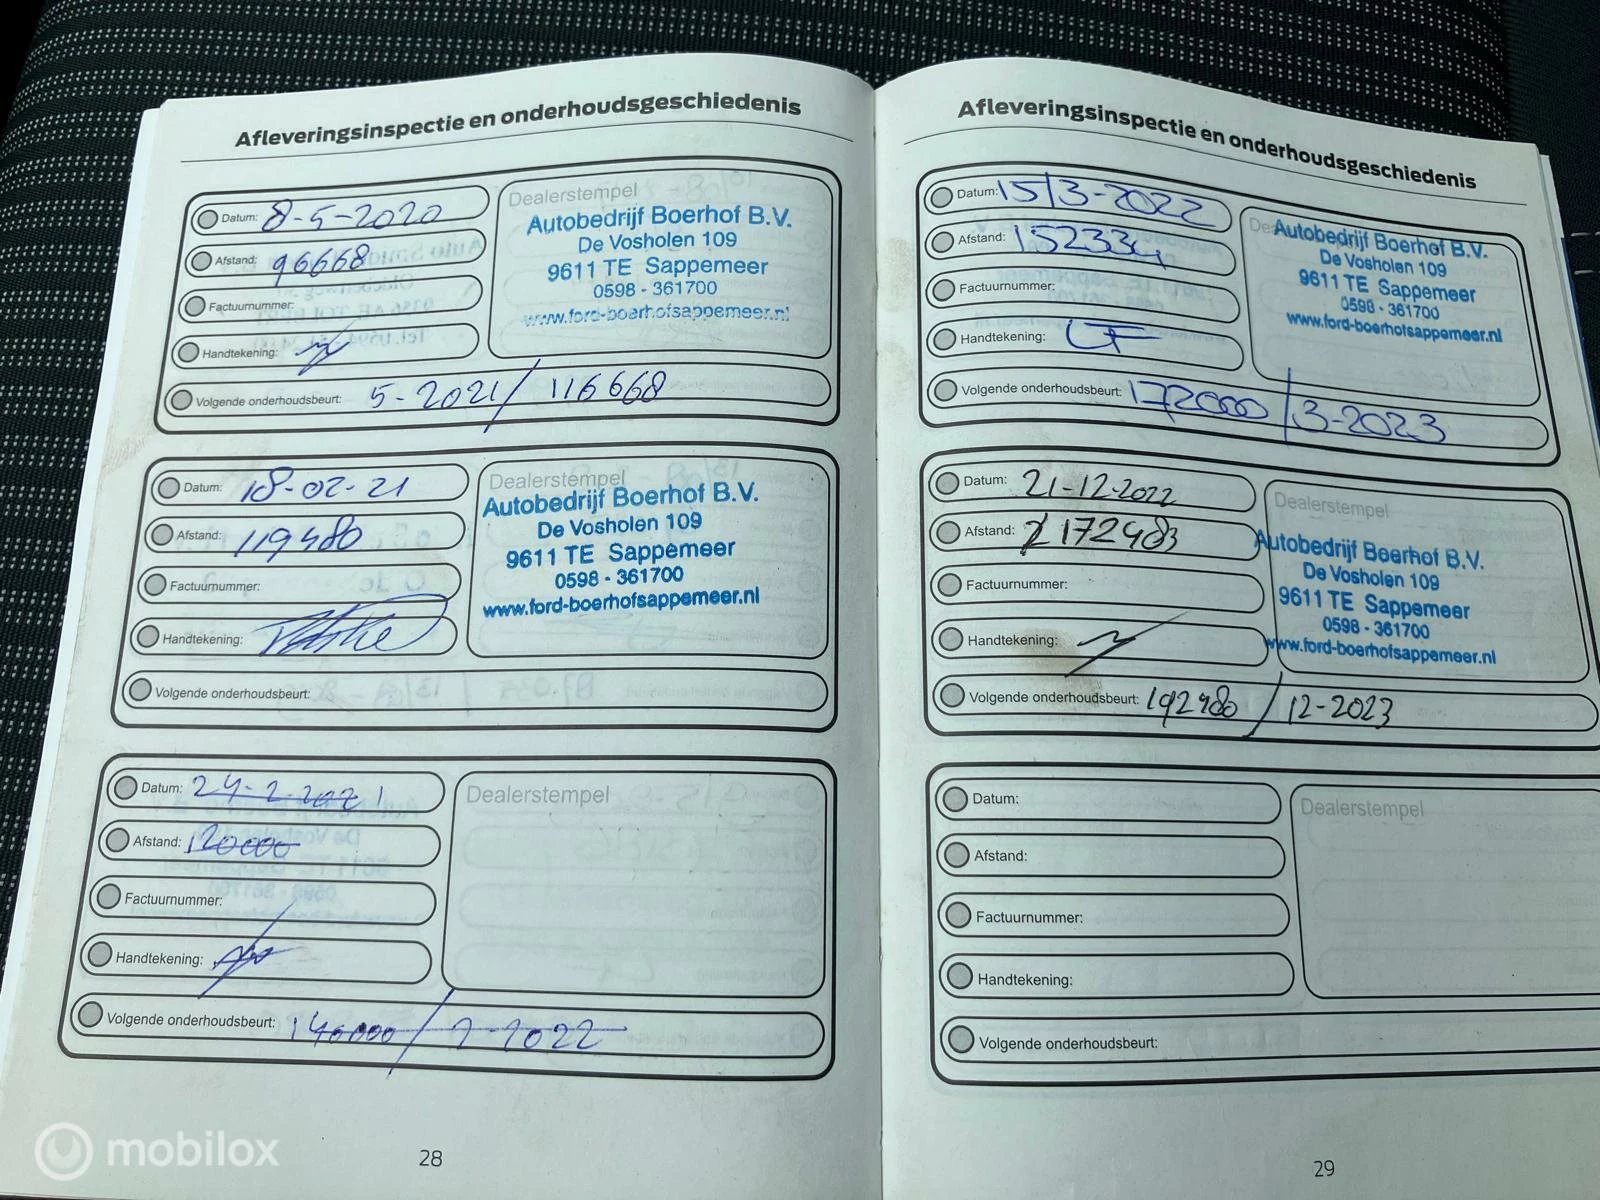 Afleveringsinspectie en onderhoudsgeschiedenis
Datum: 8-5-2020
Afstand: 96668
Factuurnummer:
Handtekening:
Volgende onderhoudsbeurt: 5-2021 / 116668
Dealerstempel
Autobedrijf Boerhof B.V.
De Vosholen 109
9611 TE Sappemeer
0598 - 361700
www.ford-boerhofsappemeer.nl
Datum: 18-02-21
Afstand: 119480
Factuurnummer:
Handtekening:
Volgende onderhoudsbeurt:
Dealerstempel
Autobedrijf Boerhof B.V.
De Vosholen 109
9611 TE Sappemeer
0598 - 361700
www.ford-boerhofsappemeer.nl
Datum: 24-2-2021
Afstand: 120000
Factuurnummer:
Handtekening:
Volgende onderhoudsbeurt: 140000 / 2-2022
Dealerstempel
28
Afleveringsinspectie en onderhoudsgeschiedenis
Datum: 15/3-2022
Afstand: 152334
Factuurnummer:
Handtekening:
Volgende onderhoudsbeurt: 172000 / 3-2023
Autobedrijf Boerhof B.V.
De Vosholen 109
9611 TE Sappemeer
0598 - 361700
www.ford-boerhofsappemeer.nl
Datum: 21-12-2022
Afstand: 172483
Factuurnummer:
Handtekening:
Volgende onderhoudsbeurt: 192480 / 12-2023
Dealerstempel
Autobedrijf Boerhof B.V.
De Vosholen 109
9611 TE Sappemeer
0598 - 361700
www.ford-boerhofsappemeer.nl
Datum:
Afstand:
Factuurnummer:
Handtekening:
Volgende onderhoudsbeurt:
Dealerstempel
29
mobilox